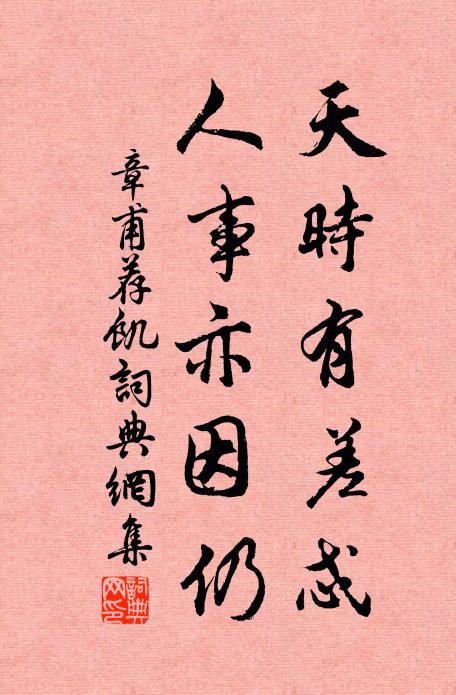 天時有差忒
人事亦因仍
章甫荐飢詞典網集
詞典网印